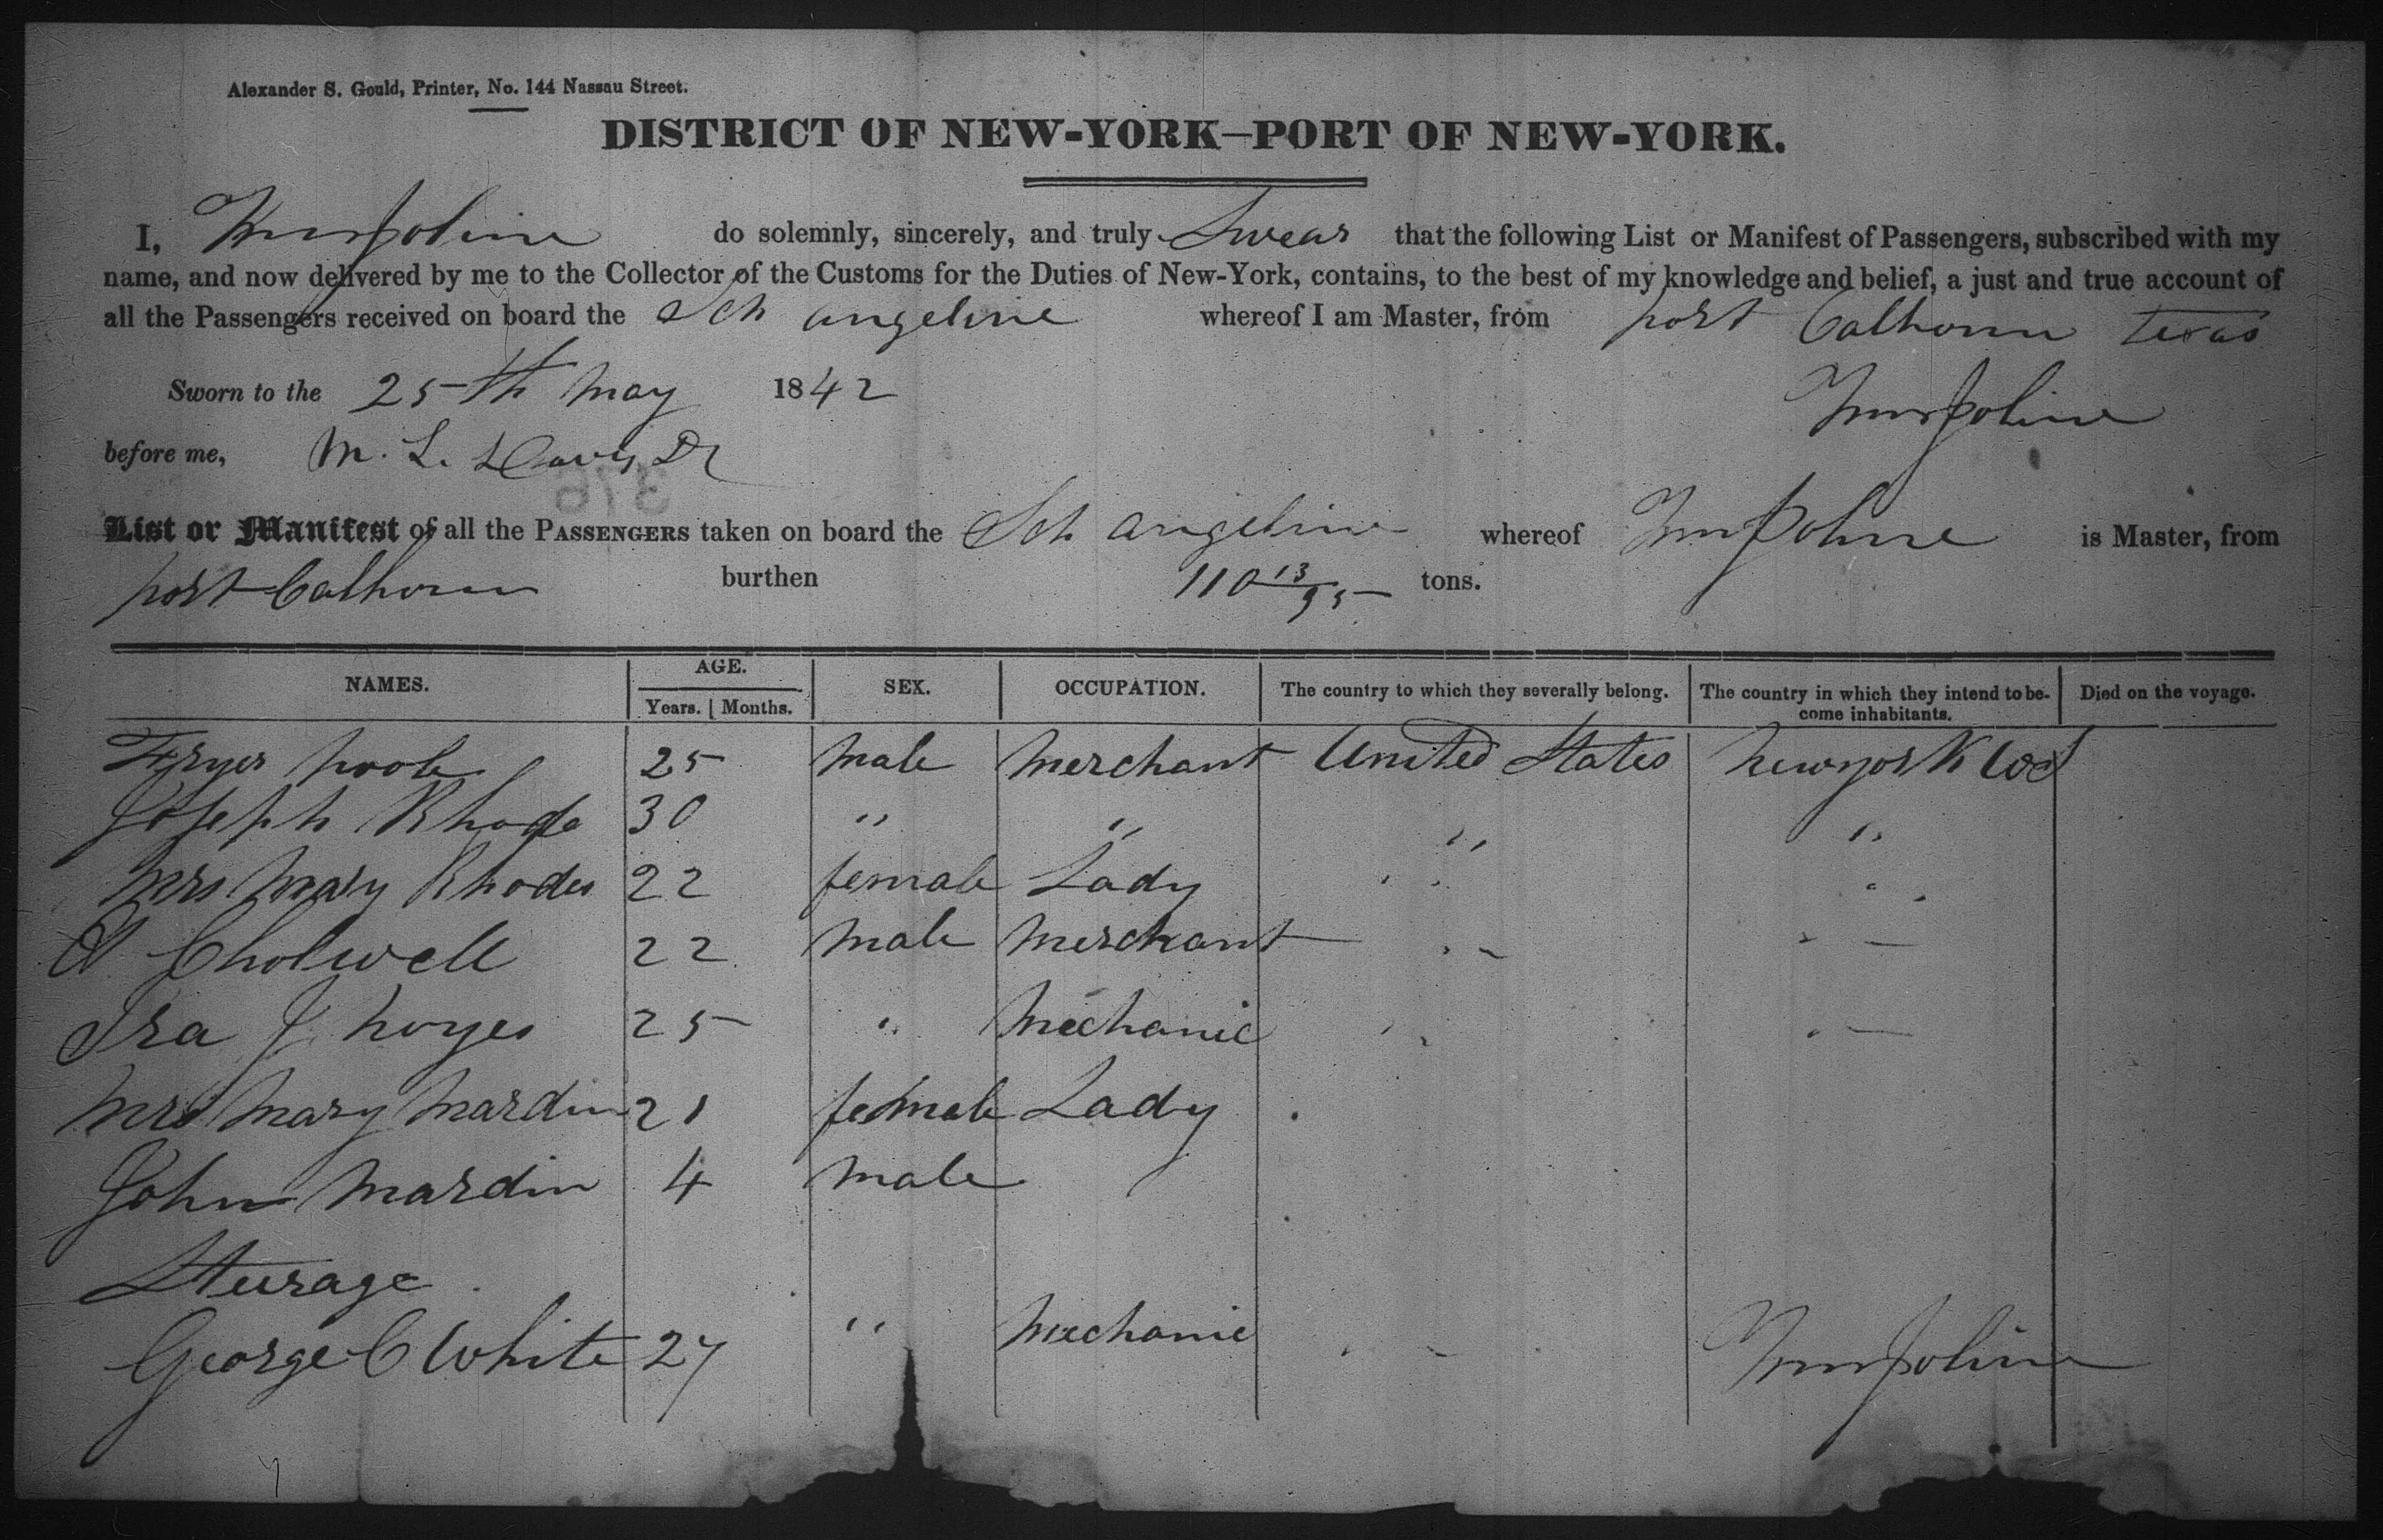 Alexander S. Gould, Printer, No. 144 Nassau Street.
DISTRICT OF NEW-YORK—PORT OF NEW-YORK.
I, Wm Joline do solemnly, sincerely, and truly Swear that the following List or Manifest of Passengers, subscribed with my
name, and now delivered by me to the Collector of the Customs for the Duties of New-York, contains, to the best of my knowledge and belief, a just and true account of
all the Passengers received on board the Sch angeline whereof I am Master, from port Calhoun texas
Sworn to the 25th may 1842 Wm Joline
before me, M. L. Davis
376
List or Manifest of all the PASSENGERS taken on board the Sch angeline whereof Wm Joline is Master, from
port Calhoun burthen 110 13/95 tons.
NAMES. AGE. Years. Months. SEX. OCCUPATION. The country to which they severally belong. The country in which they intend to become inhabitants. Died on the voyage.
Fryer poole 25 male merchant United States newyork
Joseph Rhods 30 " " " "
mrs mary Rhodes 22 female Lady " "
A Cholwell 22 male merchant " "
Ira J noyes 25 " mechanic " "
mrs mary mardin 21 female Lady
John mardin 4 male
Steurage
George C White 27 " mechanic " Wm Joline